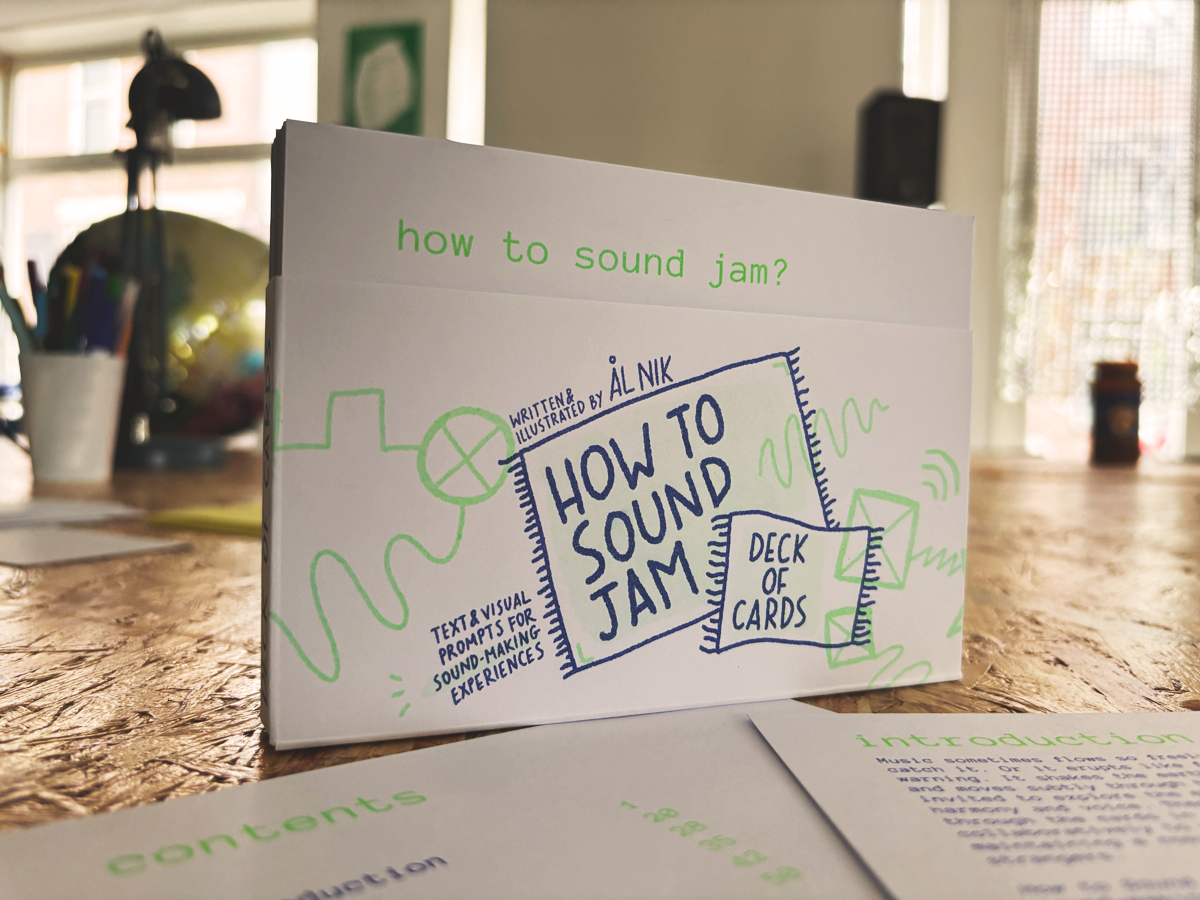 how to sound jam?
WRITTEN &
ILLUSTRATED BY ÅL NIK
HOW TO
SOUND
JAM
DECK
OF
CARDS
TEXT & VISUAL
PROMPTS FOR
SOUND-MAKING
EXPERIENCES
contents
introduction
Music sometimes flows so
catch it. Or it erupts
warning. It shakes the
and moves subtly through
invited to explore
harmony and voice.
through the cards
collaboratively
maintaining a
strangers.
How to Sound